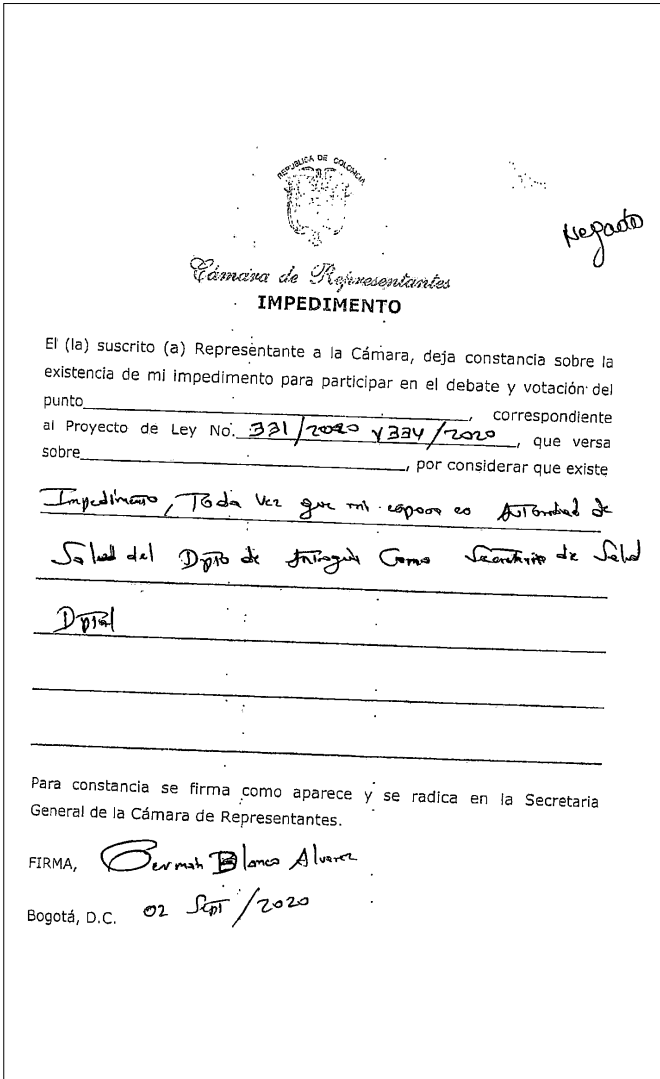 REPUBLICA DE COLOMBIA
Negado
Cámara de Representantes
IMPEDIMENTO
El (la) suscrito (a) Representante a la Cámara, deja constancia sobre la
existencia de mi impedimento para participar en el debate y votación del
punto , correspondiente
al Proyecto de Ley No. 331/2020 y 334/2020, que versa
sobre , por considerar que existe
Impedimento, Toda vez que mi esposa es Autoridad de
Salud del Dpto de Antioquia Como Secretaria de Salud
Dptal
Para constancia se firma como aparece y se radica en la Secretaria
General de la Cámara de Representantes.
FIRMA, German Blanco Alvarez
Bogotá, D.C. 02 Sept/2020